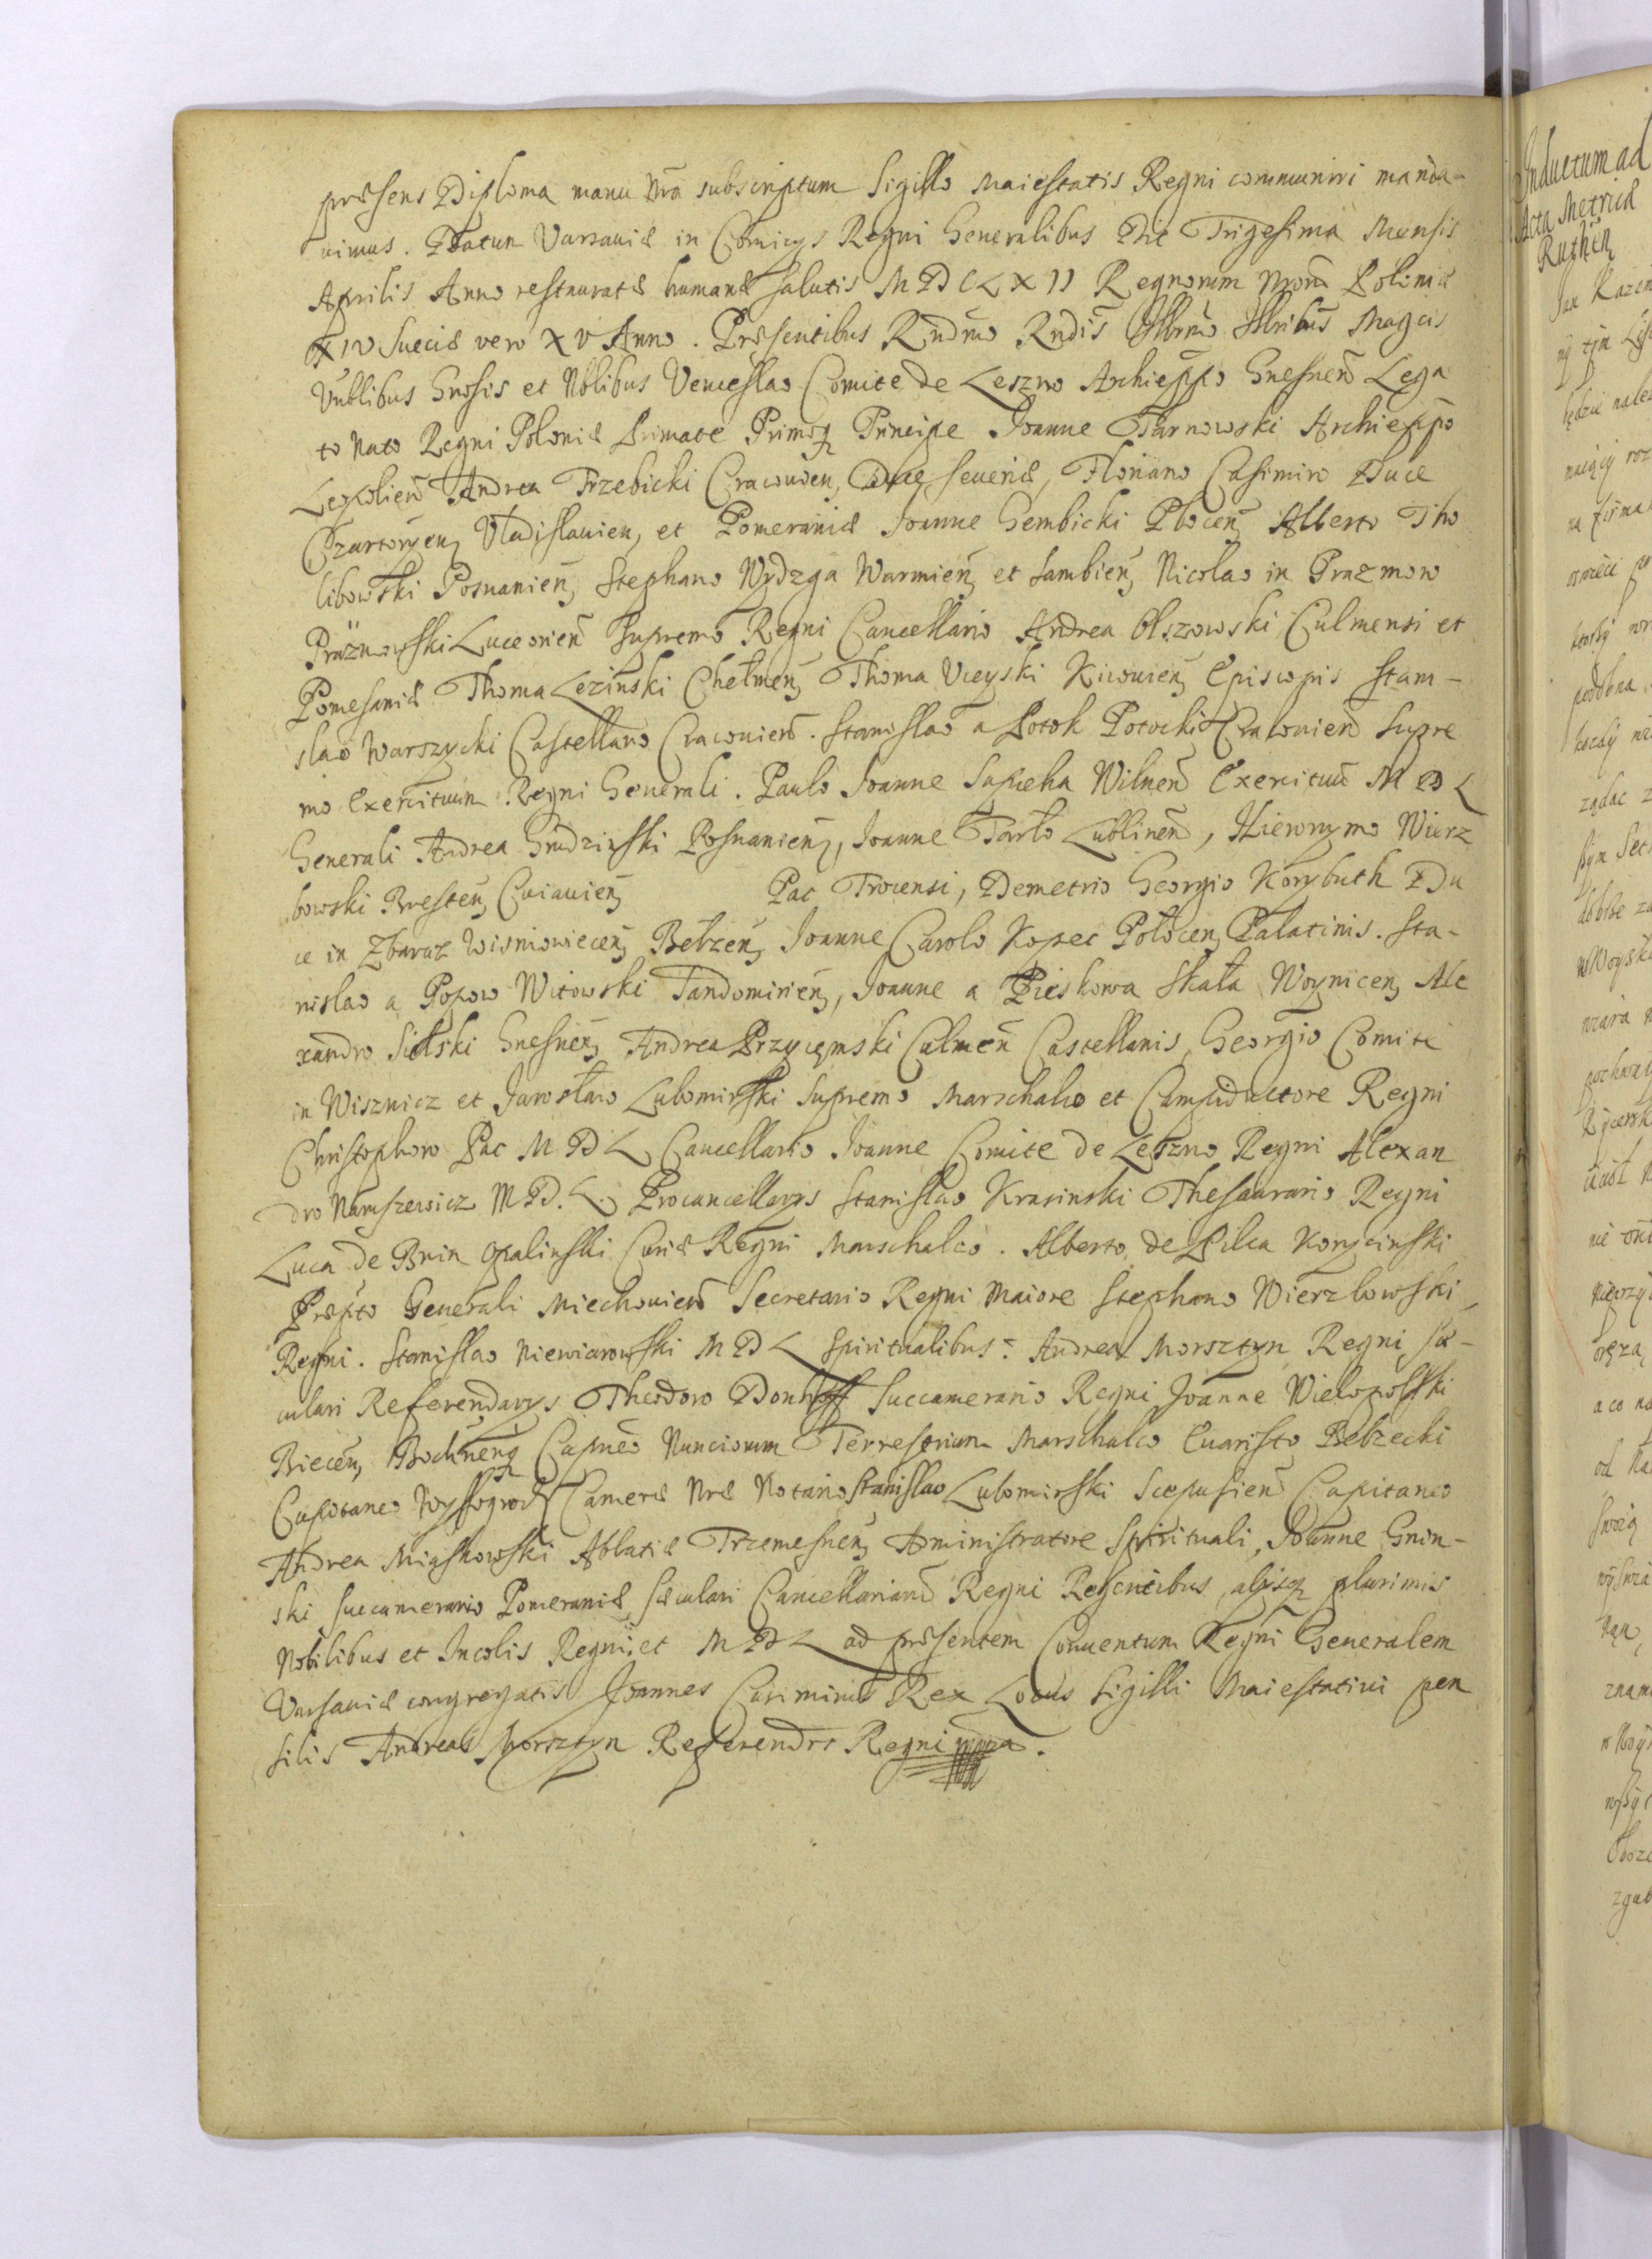 præsens Diploma manu Nrã subscriptum Sigillo Maiestatis Regni communiri manda-
uimus. Datum Varsauiæ in Comicys Regni Generalibus Die Trigesima Mensis
Aprilis Anno restauratæ humanæ salutis MDCLXII Regnorum Nrorũ Poloniæ
XIV Sueciæ vero XV Anno. Præsentibus Rndmo Rndis Illrmo Illribus Magcis
Vnblibus Gnosis et Nblibus Venceslao Comite de Leszno Archieppo Gnesneñ Lega
to Nato Regni Poloniæ Primate Primoq Principe Joanne Tarnowski Archieppo
Leopolieñ Andrea Trzebicki Cracouien, Duce Seueriæ, Floriano Casimiro Duce
Czartoryen, Vladislauien, et Pomeraniæ Joanne Gembicki Ploceñ, Alberto Tho
libowski Posnanieñ, Stephano Wydzga Warmieñ, et Sambieñ, Nicolao in Prazmow
Prazmowski Luceorieñ Supremo Regni Cancellario Andrea Olszowski Culmensi et
Pomesaniæ Thoma Lezinski Chełmeñ, Thoma Vieyski Kiiouieñ, Episcopis Stani-
slao Warszycki Castellano Cracouieñ. Stanislao a Potok Potocki Cracouieñ Supre
mo Exercituum Regni Generali. Paulo Joanne Sapieha Wilneñ Exercituũ MDL
Generali Andrea Grudzinski Posnanieñ, Joanne Tarło Lublineñ, Hieronymo Wierz
bowski Bresteñ, Cuiauieñ, Pac Trocensi, Demetrio Georgio Korybuth Du
ce in Zbaraz Wisniowieceñ, Bełzeñ, Joanne Carolo Kopec Połocen, Palatinis. Sta-
nislao a Popow Witowski Sandomirieñ, Joanne a Pieskowa Skała Woynicen, Ale
xandro Sielski Gnesneñ, Andrea Przyiemski Culmeñ Castellanis, Georgio Comite
in Wisznicz et Jarosław Lubomirski Supremo Marschalco et Campiductore Regni
Christophoro Pac MDL Cancellario Joanne Comite de Leszno Regni Alexan
dro Naruszewicz MD.L. Procancellarys Stanislao Krasinski Thesaurario Regni
Luca de Bnin Opalinski Curiæ Regni Marschalco. Alberto de Pilca Korycinski
Præpto Generali Miechouieñ Secretario Regni Maiore Stephano Wierzbowski,
Regni. Stanislao Niewiarowski MDL Spiritualibus. Andrea Morsztyn Regni, sæ-
culari Referendarys Theodoro Donhoff Succamerario Regni Joanne Wielopolski
Biecen, Bochneñq Capneo Nunciorum Terrestrium Marschalco Euaristo Bełzecki
Capitaneo Wyssogrod Cameræ Nræ Notario Stanislao Lubomirski Scepusieñ Capitaneo
Andrea Miaskowski Abbatiæ Trzemesneñ, Administratore Spirituali, Joanne Gnin-
ski, succamerario Pomeraniæ, sæculari Cancellariarũ Regni Regentibus, alysq plurimis
Nobilibus et Incolis Regni, et MDL ad præsentem Conuentum Regni Generalem
Varsauiæ congregatis Joannes Casimirus Rex Locus Sigilli Maiestatiui pen
silis Andreas Morsztyn Referendrs Regni mppa.
Inductum ad
Acta Metricæ
Rutheñ